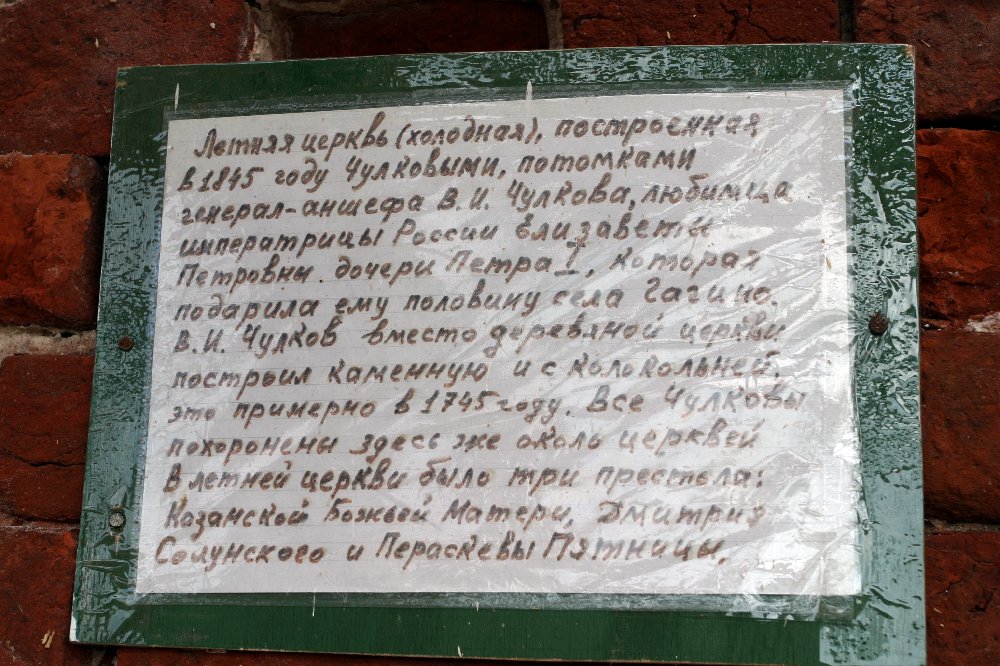 Летняя церквь (холодная), построенная
в 1845 году Чулковыми, потомками
генерал-аншефа В.И. Чулкова, любимца
императрицы России Елизаветы
Петровны. дочери Петра I, которая
подарила ему половину села Гагино.
В.И. Чулков вместо деревяной церкви
построил каменную и с колокольней.
это примерно в 1745 году. Все Чулковы
похоронены здесь же около церквей
В летней церкви было три престола:
Казанской Божьей Матери, Дмитрия
Солунского и Пераскевы Пятницы.